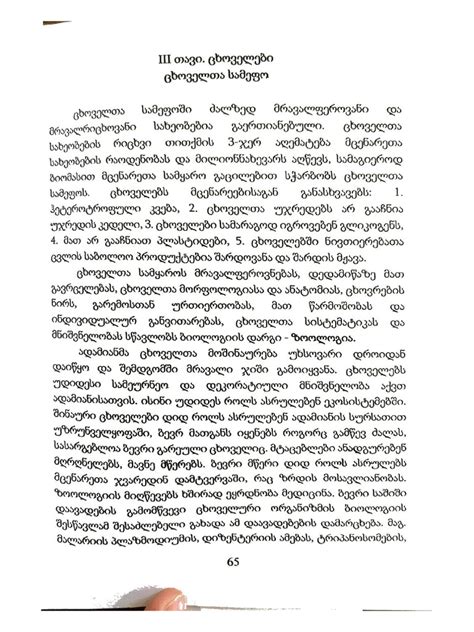 III თავი. ცხოველები
ცხოველთა სამეფო
ცხოველთა სამეფოში ძალზედ მრავალფეროვანი და
მრავალრიცხოვანი სახეობებია გაერთიანებული. ცხოველთა
სახეობების რიცხვი თითქმის 3-ჯერ აღემატება მცენარეთა
სახეობების რაოდენობას და მილიონნახევარს აღწევს, სამაგიეროდ
ბიომასით მცენარეთა სამყარო გაცილებით სჭარბობს ცხოველთა
სამეფოს. ცხოველებს მცენარეებისაგან განასხვავებს: 1.
ჰეტეროტროფული კვება, 2. ცხოველთა უჯრედებს არ გააჩნია
უჯრედის კედელი, 3. ცხოველები სამარაგოდ იგროვებენ გლიკოგენს,
4. მათ არ გააჩნიათ პლასტიდები, 5. ცხოველებში ნივთიერებათა
ცვლის საბოლოო პროდუქტებია შარდოვანა და შარდის მჟავა.
ცხოველთა სამყაროს მრავალფეროვნებას, დედამიწაზე მათ
გავრცელებას, ცხოველთა მორფოლოგიასა და ანატომიას, ცხოვრების
ნირს, გარემოსთან ურთიერთობას, მათ წარმოშობას და
ინდივიდუალურ განვითარებას, ცხოველთა სისტემატიკას და
მნიშვნელობას სწავლობს ბიოლოგიის დარგი - ზოოლოგია.
ადამიანმა ცხოველთა მოშინაურება უხსოვარი დროიდან
დაიწყო და შემდგომში მრავალი ჯიში გამოიყვანა. ცხოველებს
უდიდესი სამეურნეო და დეკორატიული მნიშვნელობა აქვთ
ადამიანისათვის. ისინი უდიდეს როლს ასრულებენ ეკოსისტემებში.
შინაური ცხოველები დიდ როლს ასრულებენ ადამიანის სურსათით
უზრუნველყოფაში, ბევრ მათგანს იყენებს როგორც გამწევ ძალას,
სასარგებლოა ბევრი გარეული ცხოველიც. მტაცებლები ანადგურებენ
მღრღნელებს, მავნე მწერებს. ბევრი მწერი დიდ როლს ასრულებს
მცენარეთა ჯვარედინ დამტვერვაში, რაც ზრდის მოსავლიანობას.
ზოოლოგიის მიღწევებს ხშირად ეყრდნობა მედიცინა. ბევრი საშიში
დაავადების გამომწვევი ცხოველური ორგანიზმის ბიოლოგიის
შესწავლამ შესაძლებელი გახადა ამ დაავადებების დამარცხება. მაგ.
მალარიის პლაზმოდიუმის, დიზენტერიის ამებას, ტრიპანოსომების,
65